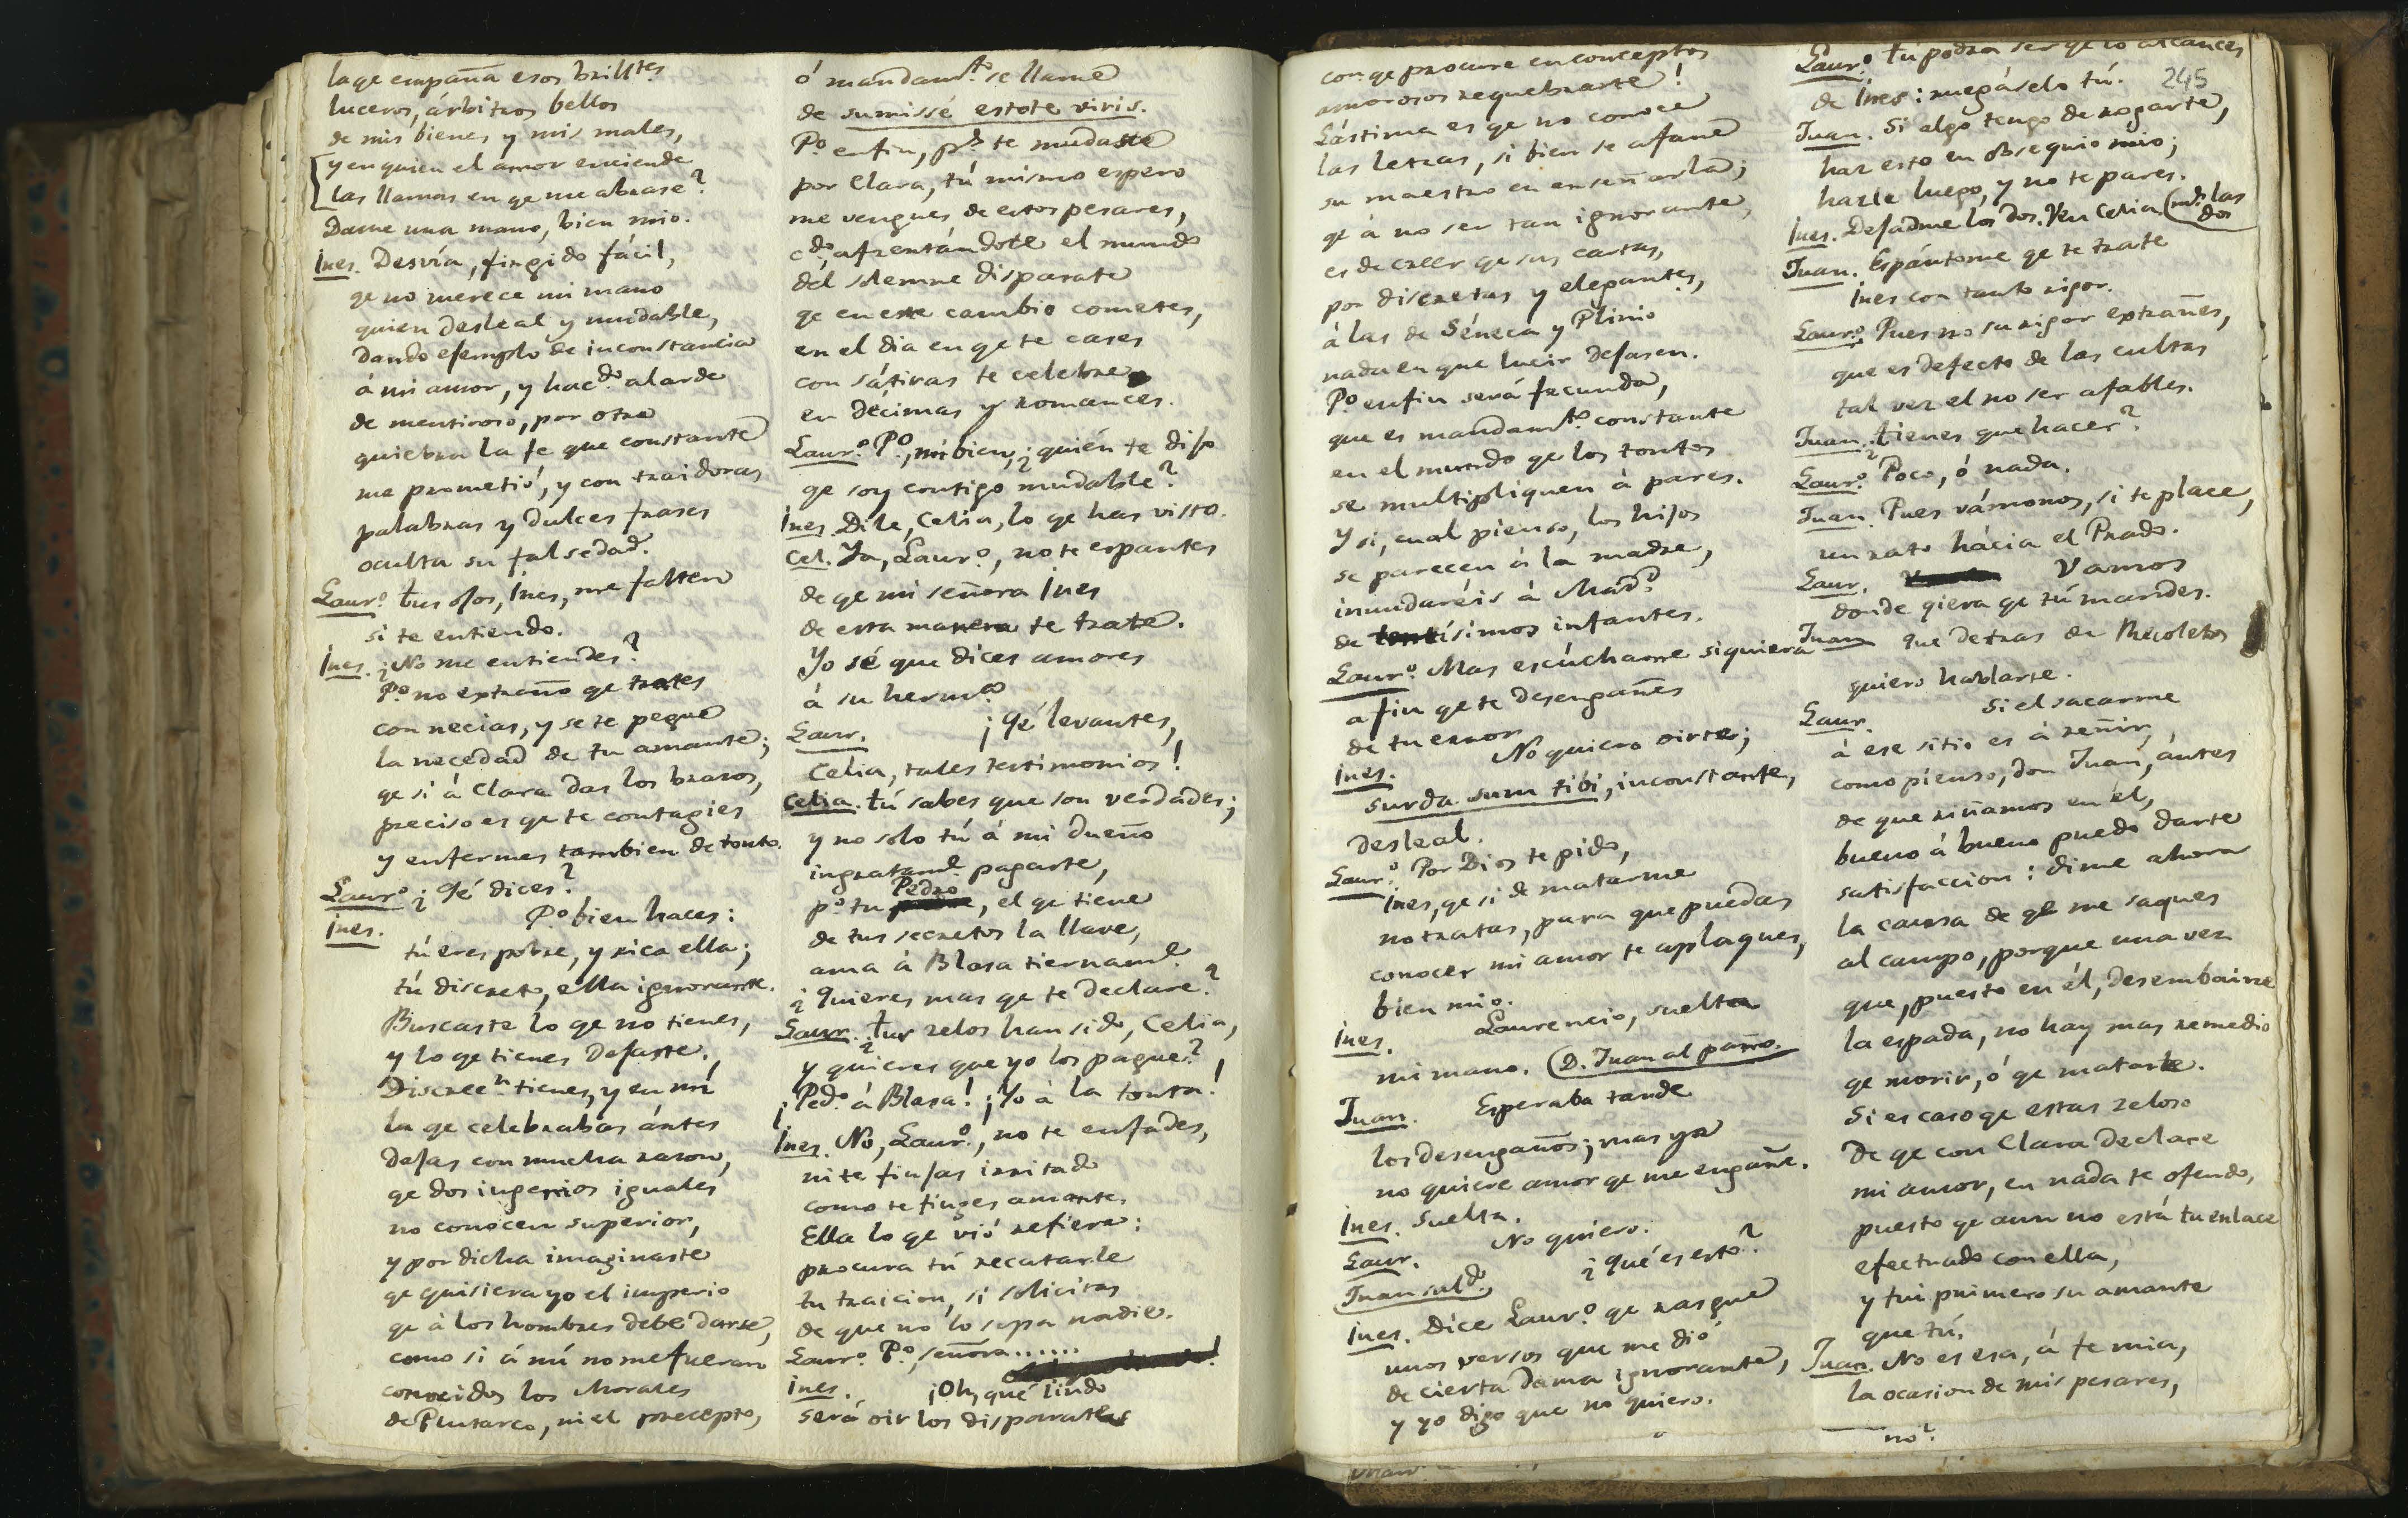 la qe empaña esos brilltes
luceros, árbitros bellos
de mis bienes y mis males,
y en quien el amor enciende
las llamas en qe me abrase?
Dame una mano, bien mio.
Ines. Desvía, fingido fácil,
qe no merece mi mano
quien desleal y mudable,
dando ejemplo de inconstancia
á mi amor, y hacdo alarde
de mentiroso, por otra
quiebra la fe que constante
me prometió, y con traidoras
palabras y dulces frases
oculta su falsedad.
Lauro. Tus ojos, Ines, me falten
si te entiendo.
Ines. ¿No me entiendes?
Po no extraño qe trates
con necias, y se te pegue
la necedad de tu amante;
qe si á Clara das los brazos,
preciso es qe te contagies
y enfermes tambien de tonto.
Lauro. ¿Qé dices?
Ines. Po bien haces:
tú eres pobre, y rica ella;
tú discreto, ella ignorante.
Buscaste lo qe no tienes,
y lo qe tienes dejaste.
Discreen tienes, y en mí
la qe celebrabas ántes
dejas con mucha razon,
qe dos ingenios iguales
no conocen superior,
y por dicha imaginaste
qe quisiera yo el imperio
qe á los hombres debe darse,
como si á mí no me fueran
conocidos los Morales
de Plutarco, ni el precepto,
ó mandamto se llame
de sumissé estote viris.
Po enfin, ps te mudaste
por Clara, tú mismo espero
me vengues de estos pesares,
cdo afrentándote el mundo
del solemne disparate
qe en este cambio cometes,
en el dia en qe te cases
con sátiras te celebre
en décimas y romances.
Lauro. Po, mi bien, ¿quién te dijo
qe soy contigo mudable?
Ines. Dile, Celia, lo qe has visto.
Cel. Ya, Lauro, no te espantes
de qe mi señora Ines
de esta manera te trate.
Yo sé que dices amores
á su hermna
Laur. ¡Qé levantes,
Celia, tales testimonios!
Celia. Tú sabes que son verdades;
y no solo tú á mi dueño
ingratame pagaste,
po tu Pedro, el qe tiene
de tus secretos la llave,
ama á Blasa tiername.
¿Quieres mas qe te declare?
Laur. ¿Tus zelos han sido, Celia,
y quieres que yo los pague?
¡Pedo á Blasa! ¡Yo á la tonta!
Ines. No, Lauro, no te enfades,
ni te finjas irritado
como te finges amante.
Ella lo qe vió refiere:
procura tú recatarle
tu traicion, si solicitas
de que no lo sepa nadie.
Lauro. Po, señora......
Ines. ¡Oh, qué lindo
será oir los disparates
con qe procure en conceptos
amorosos requebrarte!
Lástima es qe no conoce
las letras, si bien se afane
su maestro en enseñarla;
qe á no ser tan ignorante,
es de creer qe sus cartas,
por discretas y elegantes,
á las de Séneca y Plinio
nada en que lucir dejasen.
Po enfin será fecunda,
que es mandamto constante
en el mundo qe los tontos
se multipliquen á pares.
Y si, cual pienso, los hijos
se parecen á la madre,
inundaréis á Madd
de tontísimos infantes.
Lauro. Mas escúchame siquiera
a fin qe te desengañes
de tu error.
Ines. No quiero oirte;
surda sum tibi, inconstante,
desleal.
Lauro. Por Dios te pido,
Ines, qe si de matarme
no tratas, para que puedas
conocer mi amor te aplaques,
bien mio.
Ines. Laurencio, suelta
mi mano. (D. Juan al paño.
Juan. Esperaba tarde
los desengaños; mas ya
no quiere amor qe me engañe.
Ines. Suelta.
Laur. No quiero.
Juan saldo. ¿Qué es esto?
Ines. Dice Lauro qe rasgue
unos versos que me dió
de cierta dama ignorante,
y yo digo que no quiero.
245
Lauro. Tú podrá ser qe lo alcances
de Ines: ruegáselo tú.
Juan. Si algo tengo de rogarte,
haz esto en obsequio mio;
hazle luego, y no te pares.
Ines. Dejadme los dos. Ven Celia. (vse. las dos
Juan. Espántome qe te trate
Ines con tanto rigor.
Lauro. Pues no su rigor extrañes,
que es defecto de las cultas
tal vez el no ser afables.
Juan. ¿Tienes que hacer?
Lauro. Poco, ó nada.
Juan. Pues vámonos, si te place,
un rato hácia el Prado.
Laur. Vamos
donde qiera qe tú mandes.
Juan que detras de Recoletos
quiero hablarte.
Laur. Si el sacarme
á ese sitio es á reñir,
como pienso, don Juan, ántes
de que riñamos en él,
bueno á bueno puedo darte
satisfaccion: dime ahora
la causa de qe me saques
al campo, porque una vez
que, puesto en él, desembaine
la espada, no hay mas remedio
qe morir, ó qe matarte.
Si es caso qe estas zeloso
de qe con Clara declare
mi amor, en nada te ofendo,
puesto qe aun no está tu enlace
efectuado con ella,
y fui primero su amante
que tú.
Juan. No es esa, á fe mia,
la ocasion de mis pesares,